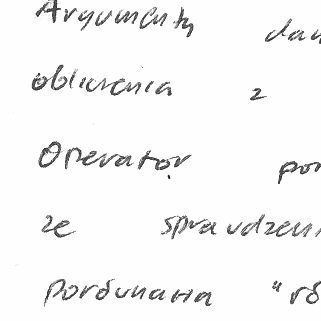 Argumenty dan
obliczenia z
Operator por
ze sprawdzeni
porównania "ró